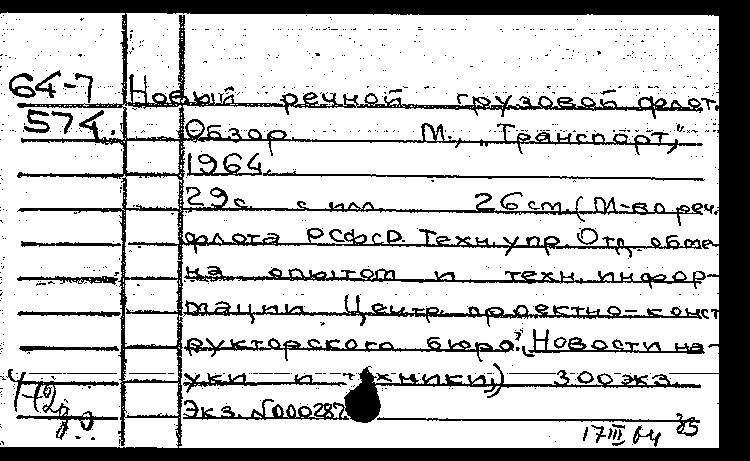 64-7 Новый речной грузовой флот.
574. Обзор. М., „Транспорт,"
1964.
29с. с илл. 26 см. (М-во реч.
флота РСФСР. Техн. упр. Отд. обме-
на опытом и техн. инфор-
мации Центр. проектно-конст
рукторского бюро. „Новости на-
уки и техники,,) 300 экз.
Экз. №000287
17 III 64 35